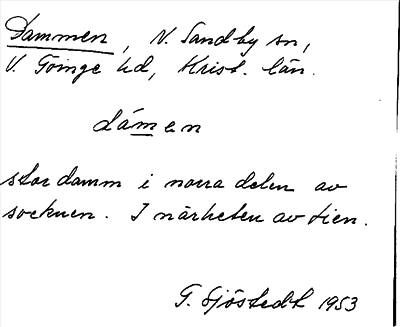 Dammen, N. Sandby sn,
V. Göinge hd, Krist. län.
dámen
stor damm i norra delen av
socknen. I närheten av
G. Sjöstedt 1953